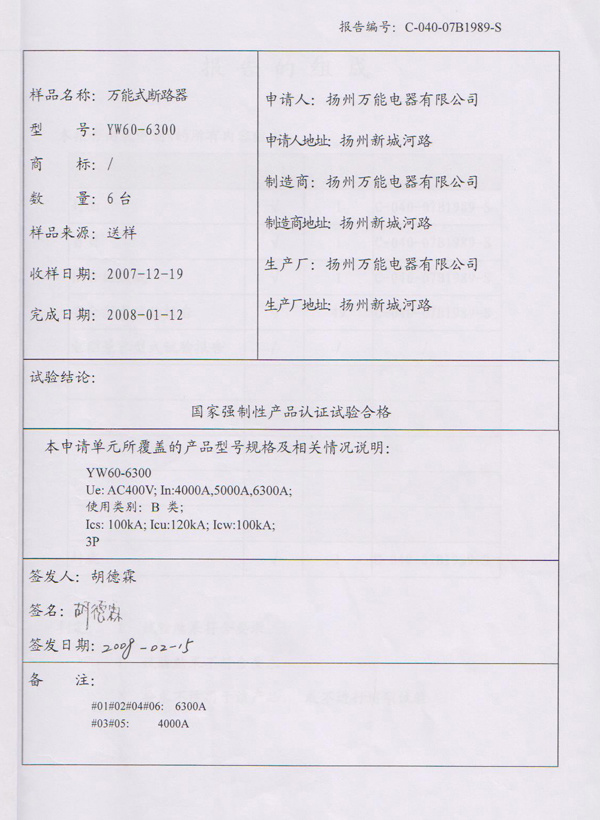 报告编号: C-040-07B1989-S
样品名称: 万能式断路器
型 号: YW60-6300
商 标: /
数 量: 6 台
样品来源: 送样
收样日期: 2007-12-19
完成日期: 2008-01-12
申请人: 扬州万能电器有限公司
申请人地址: 扬州新城河路
制造商: 扬州万能电器有限公司
制造商地址: 扬州新城河路
生产厂: 扬州万能电器有限公司
生产厂地址: 扬州新城河路
试验结论:
国家强制性产品认证试验合格
本申请单元所覆盖的产品型号规格及相关情况说明:
YW60-6300
Ue: AC400V; In:4000A,5000A,6300A;
使用类别: B 类;
Ics: 100kA; Icu:120kA; Icw:100kA;
3P
签发人: 胡德霖
签名: 胡德霖
签发日期: 2008-02-15
备 注:
#01#02#04#06: 6300A
#03#05: 4000A